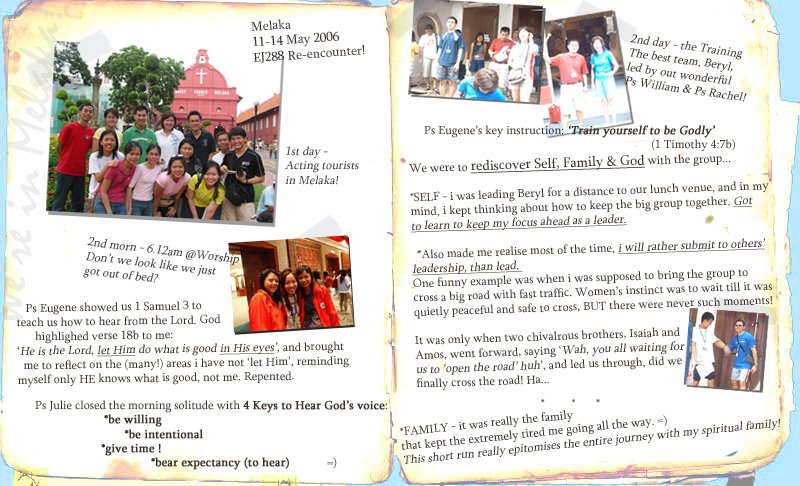 We're in Melaka!
Melaka
11-14 May 2006
EJ288 Re-encounter!
1st day -
Acting tourists
in Melaka!
2nd morn - 6.12am @Worship
Don't we look like we just
got out of bed?
Ps Eugene showed us 1 Samuel 3 to
teach us how to hear from the Lord. God
highlighed verse 18b to me:
'He is the Lord, let Him do what is good in His eyes', and brought
me to reflect on the (many!) areas i have not 'let Him', reminding
myself only HE knows what is good, not me. Repented.
Ps Julie closed the morning solitude with 4 Keys to Hear God's voice:
*be willing
*be intentional
*give time !
*bear expectancy (to hear) =)
2nd day - the Training
The best team, Beryl,
led by out wonderful
Ps William & Ps Rachel!
Ps Eugene's key instruction: 'Train yourself to be Godly'
(1 Timothy 4:7b)
We were to rediscover Self, Family & God with the group...
*SELF - i was leading Beryl for a distance to our lunch venue, and in my
mind, i kept thinking about how to keep the big group together. Got
to learn to keep my focus ahead as a leader.
*Also made me realise most of the time, i will rather submit to others'
leadership, than lead.
One funny example was when i was supposed to bring the group to
cross a big road with fast traffic. Women's instinct was to wait till it was
quietly peaceful and safe to cross, BUT there were never such moments!
It was only when two chivalrous brothers, Isaiah and
Amos, went forward, saying 'Wah, you all waiting for
us to 'open the road' huh', and led us through, did we
finally cross the road! Ha...
* * *
*FAMILY - it was really the family
that kept the extremely tired me going all the way. =)
This short run really epitomises the entire journey with my spiritual family!